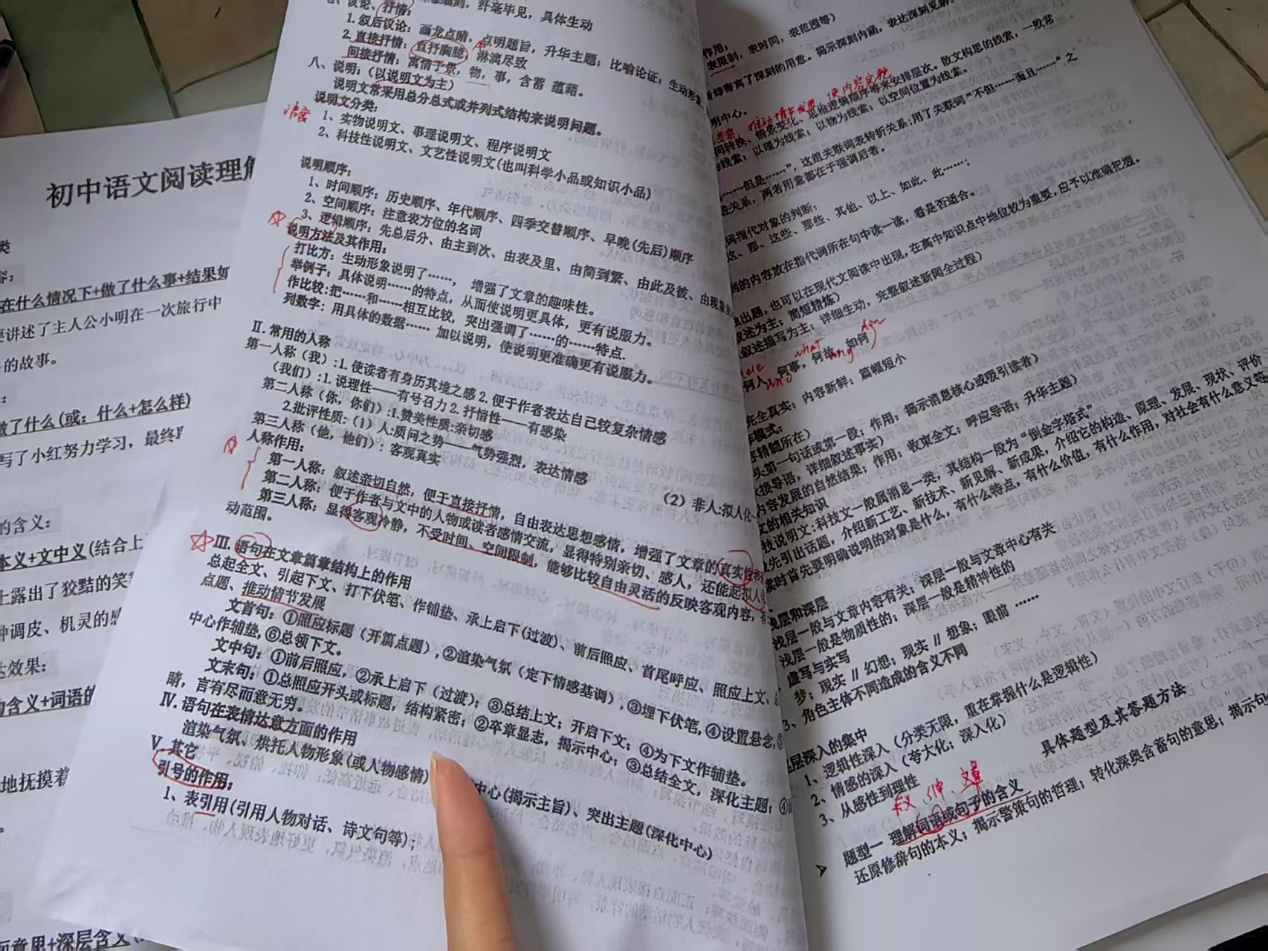 初中语文阅读理解
在什么情况下+做了什么事+结果如
要讲述了主人公小明在一次旅行中
的故事。
做了什么(或:什么+怎么样)
写了小红努力学习,最终
的含义:
本义+文中义(结合上
上露出了狡黠的笑
种调皮、机灵的感
达效果:
含义+词语的
地抚摸着
纤毫毕见,具体生动
议论、抒情:
1.叙后议论:画龙点睛,点明题旨,升华主题;比喻论证:生动形象
2.直接抒情:直抒胸臆,淋漓尽致
间接抒情:寓情于景,物,事,含蓄 蕴藉。
八、说明:(以说明文为主)
说明文常采用总分总式或并列式结构来说明问题。
说明文分类:
1、实物说明文、事理说明文、程序说明文
2、科技性说明文、文艺性说明文(也叫科学小品或知识小品)
说明顺序:
1、时间顺序:历史顺序、年代顺序、四季交替顺序、早晚(先后)顺序
2、空间顺序:注意表方位的名词
3、逻辑顺序:先总后分、由主到次、由表及里、由简到繁、由此及彼、由现象
说明方法及其作用:
打比方:生动形象说明了……,增强了文章的趣味性。
举例子:具体说明……的特点,从而使说明更具体,更有说服力。
作比较:把……和……相互比较,突出强调了……的……特点.
列数字:用具体的数据……加以说明,使说明更准确更有说服力。
Ⅱ.常用的人称
第一人称(我):1.使读者有身历其境之感 2.便于作者表达自己较复杂情感
(我们):1.说理性——有号召力 2.抒情性——有感染
第二人称(你、你们):1.赞美性质:亲切感
2.批评性质:(1)人:质问之势——气势强烈,表达情感 (2)非人:拟人化
第三人称(他,他们):客观真实
人称作用:
第一人称:叙述亲切自然,便于直接抒情,自由表达思想感情,增强了文章的真实性
第二人称:便于作者与文中的人物或读者感情交流,显得特别亲切、感人,还能起拟人化
第三人称:显得客观冷静,不受时间、空间限制,能够比较自由灵活的反映客观内容,
动范围。
Ⅲ.语句在文章篇章结构上的作用
总起全文、引起下文、打下伏笔、作铺垫、承上启下(过渡)、前后照应、首尾呼应、照应上文、
点题、推动情节发展
文首句:①照应标题(开篇点题),②渲染气氛(定下情感基调),③埋下伏笔,④设置悬念,
中心作铺垫,⑥总领下文。
文中句:①前后照应,②承上启下(过渡);③总结上文;开启下文;④为下文作铺垫。
文末句:①总照应开头或标题,结构紧密;②卒章显志,揭示中心;③总结全文,深化主题;④
暗,言有尽而意无穷。
Ⅳ.语句在表情达意方面的作用
渲染气氛、烘托人物形象(或人物感情) 中心(揭示主旨)、突出主题(深化中心)
Ⅴ.其它
引号的作用:
1、表引用(引用人物对话、诗文句等);
作用:
表限制,表时间,表范围等)
寄寓了深刻的用意。揭示深刻内涵,表达深刻见解。
明中心。
……但是……”,这组关联词表转折关系;用了关联词“不但……而且……”之
关系,两者用意都在于强调后者。
词指代对象的判断:
这、那、这些、那些、其他、以上、如此、此……;
的内容放在指代词所在句中读一读,看是否适合。
出题,也可以在现代文阅读中出现,在高中知识点中地位较为重要,应予以准确把握。
叙述为主;简短精炼)
叙述描写为主,详细生动,完整叙述新闻全过程)
何人、何事,何故、如何
who what
完全真实;内容新鲜;篇幅短小
第一句话或第一段;作用:揭示消息核心或吸引读者)
接导语,详细叙述事实)
内容发展的自然结果;作用:收束全文;呼应导语;升华主题)
文的相关知识
技说明文:科技文一般属消息一类,其结构一般为“倒金字塔式”
先引出话题,介绍新工艺、新技术、新见解、新成果,介绍它的构造、原理、发展、现状、评价
时首先要明确说明的对象是什么,有什么特点,有什么价值,有什么作用,对社会有什么意义等
浅层和深层
浅层一般与文章内容有关、深层一般与文章中心有关
浅层一般是物质性的;深层一般是精神性的
虚写与实写
梦;现实∥幻想;现实∥想象;眼前……
3、角色主体不同造成的含义不同
层深入的集中
1、逻辑性深入(分类无限,重在掌握什么是逻辑性)
2、情感的深入(夸大化;深入化)
3、从感性到理性
具体题型及其答题方法
题型一 理解词语或句子的含义
还原修辞句的本义;揭示警策句的哲理;转化深奥含蓄句的意思;揭示句